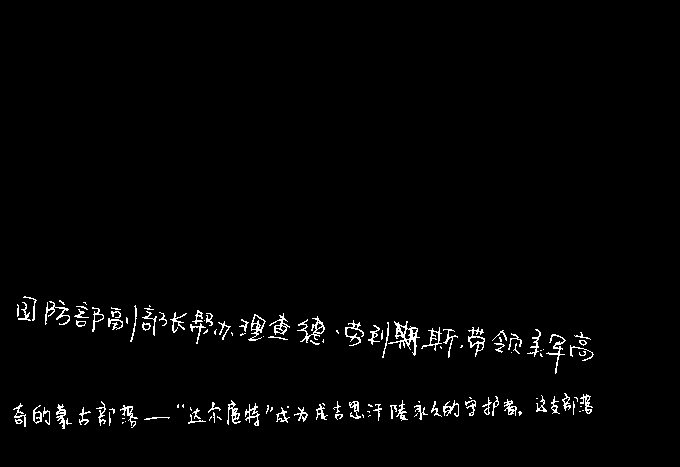 国防部副部长帮办理查德·劳利斯斯.带领美军高
奇的蒙古部落—“达尔扈特”成为成吉思汗陵永久的守护者。这支部落